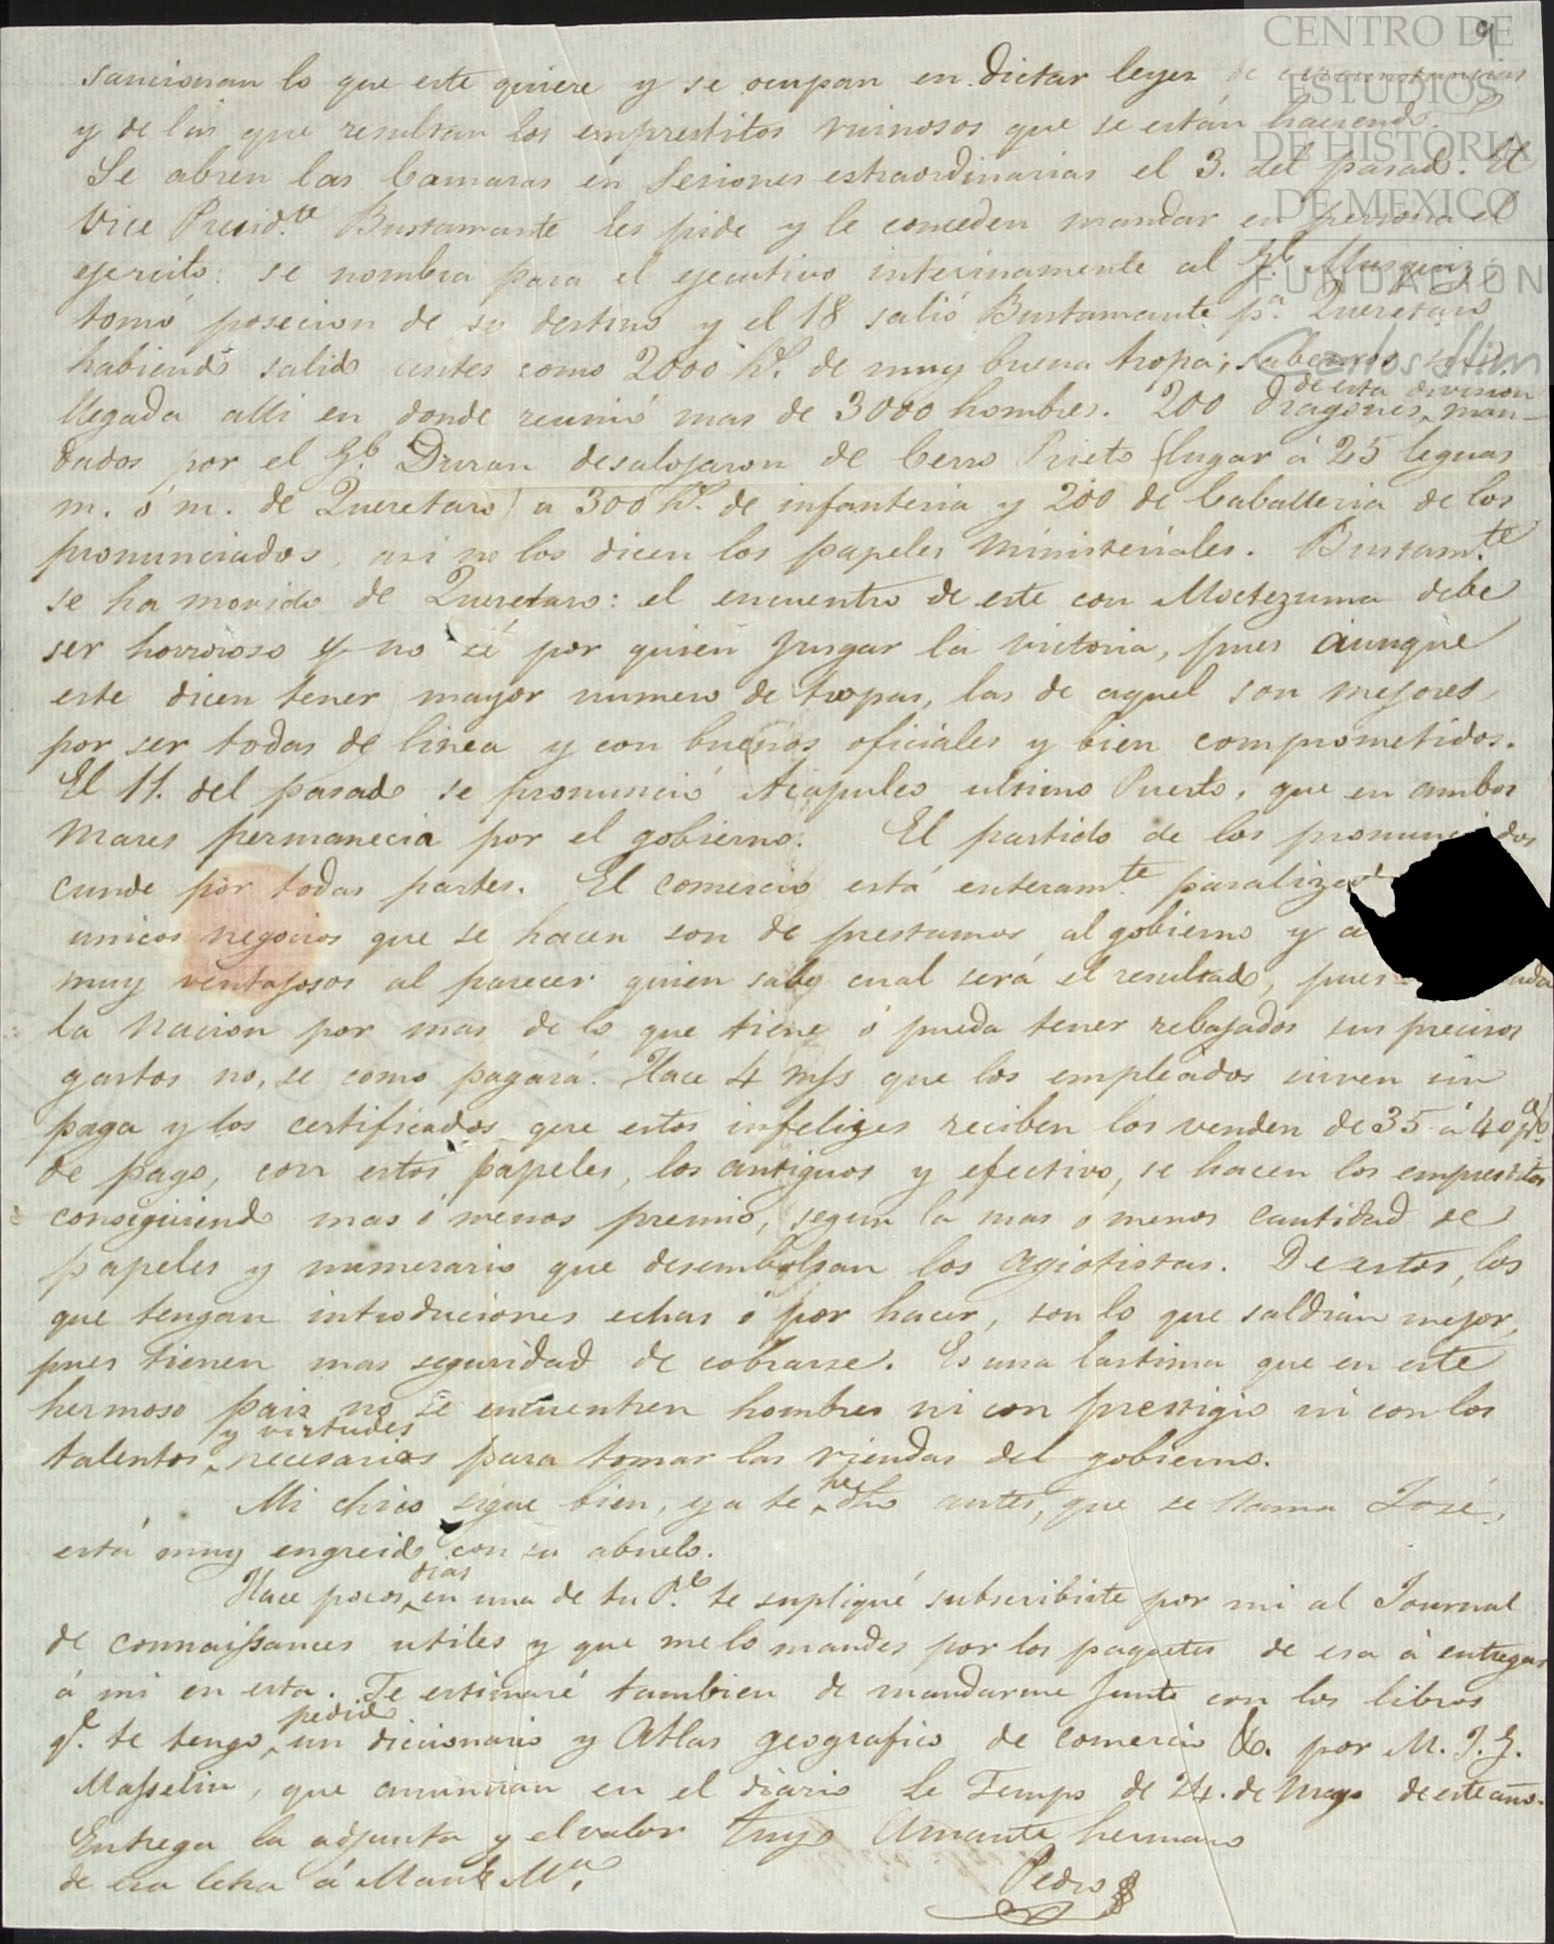 CENTRO DE
ESTUDIOS
DE HISTORIA
DE MEXICO
FUNDACIÓN
Carlos Slim
9
sancionan lo que este quiere y se ocupan en dictar leyes de circunstancias
y de las que resultan los emprestitos ruinosos que se están haciendo.
Se abren las Camaras en Sesiones estraordinarias el 3. del pasado. El
Vice Presid.te Bustamante les pide y le conceden mandar en persona el
ejercito: se nombra para el ejecutivo interinamente al Gl. Musquiz:
tomó posecion de su destino y el 18 salió Bustamante p.a Queretaro
habiendo salido antes como 2000 h.s de muy buena tropa; sabemos su
llegada alli en donde reunió mas de 3000 hombres. 200 dragones de esta division man-
dados por el Gl. Duran desalojaron de Cerro Prieto (lugar á 25 leguas
m. ó m. de Queretaro) a 300 h.s de infanteria y 200 de Caballeria de los
pronunciados, asi no los dicen los papeles ministeriales. Bustam.te
se ha movido de Queretaro: el encuentro de este con Moctezuma debe
ser horroroso y no sé por quien jusgar la victoria, pues aunque
este dicen tener mayor numero de tropas, las de aquel son mejores
por ser todas de linea y con buenos oficiales y bien comprometidos.
El 11. del pasado se pronunció Acapulco ultimo Puerto, que en ambos
mares permanecia por el gobierno. El partido de los pronunciados
cunde por todas partes. El comercio está enteram.te paralizad
unicos negocios que se hacen son de prestamos al gobierno y a
muy ventajosos al parecer quien sabe cual será el resultado, pues
la nacion por mas de lo que tiene ó pueda tener rebajados sus precisos
gastos no, se como pagará. Hace 4 m/s que los empleados sirven sin
paga y los certificados que estos infelizes reciben los venden de 35 á 40 p%
de pago, con estos papeles, los antiguos y efectivo, se hacen los emprestitos
consiguiendo mas ó menos premio, segun la mas o menos cantidad de
papeles y numerario que desembolsan los agiotistas. De estos, los
que tengan introduciones echas ó por hacer, son lo que saldrán mejor,
pues tienen mas seguridad de cobrarse. Es una lastima que en este
hermoso pais no se encuentren hombres ni con prestigio ni con los
talentos y virtudes necesarios para tomar las riendas del gobierno.
Mi chico sigue bien, ya te he dho antes, que se llama José,
está muy engreido con su abuelo.
Hace pocos dias en una de tu P.e te supliqué subscribirte por mi al Journal
de connaissances utiles y que me lo mandes por los paquetes de esa á entregar
á mi en esta. Te estimaré tambien de mandarme junto con los libros
q.e te tengo pedido un diccionario y Atlas geografico de comercio &. por M. J. G.
Masselin, que anuncian en el diario Le Temps de 24. de Mayo de este año.
Entrega la adjunta y el valor Tuyo Amante hermano
de esa letra á Man.l M.a
Pedro